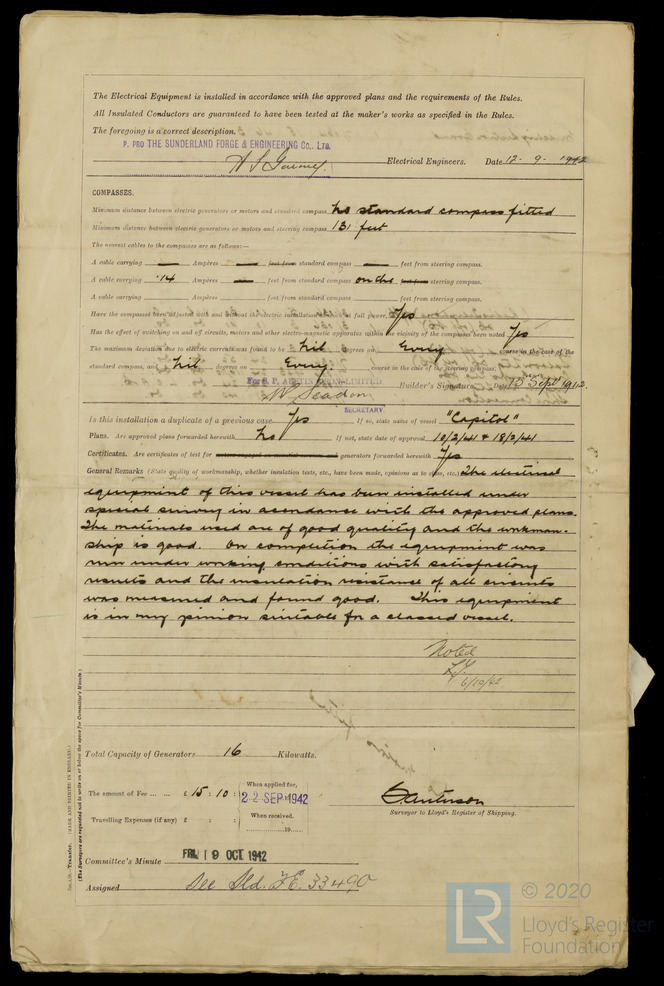 The Electrical Equipment is installed in accordance with the approved plans and the requirements of the Rules.
All Insulated Conductors are guaranteed to have been tested at the maker's works as specified in the Rules.
The foregoing is a correct description.
P. PRO THE SUNDERLAND FORGE & ENGINEERING Co., LTD.
Electrical Engineers. Date 12-9-1942
COMPASSES.
Minimum distance between electric generators or motors and standard compass No standard compass fitted
Minimum distance between electric generators or motors and steering compass 131 feet
The nearest cables to the compasses are as follows:—
A cable carrying — Ampères — feet from standard compass — feet from steering compass.
A cable carrying .14 Ampères — feet from standard compass on the feet from steering compass.
A cable carrying Ampères feet from standard compass feet from steering compass.
Have the compasses been adjusted with and without the electric installation at work at full power Yes
Has the effect of switching on and off circuits, motors and other electro-magnetic apparatus within the vicinity of the compasses been noted Yes
The maximum deviation due to electric currents was found to be Nil degrees on Every course in the case of the
standard compass, and Nil degrees on Every course in the case of the steering compass.
For S. P. AUSTIN & SON LIMITED
SECRETARY.
Builder's Signature. Date 15 Sept 1942.
Is this installation a duplicate of a previous case Yes If so, state name of vessel "Capitol"
Plans. Are approved plans forwarded herewith No If not, state date of approval 10/2/41 & 18/2/41
Certificates. Are certificates of test for generators forwarded herewith Yes
General Remarks (State quality of workmanship, whether insulation tests, etc., have been made, opinions as to class, etc.) The electrical
equipment of this vessel has been installed under
special survey in accordance with the approved plans.
The materials used are of good quality and the workman-
ship is good. On completion the equipment was
run under working conditions with satisfactory
results and the insulation resistance of all circuits
was measured and found good. This equipment
is in my opinion suitable for a classed vessel.
Noted
6/10/42
Total Capacity of Generators 16 Kilowatts.
The amount of Fee ... ... £ 15 : 10 :
When applied for,
22 SEP 1942
Travelling Expenses (if any) £ : :
When received.
19
Surveyor to Lloyd's Register of Shipping.
Committee's Minute FRI 9 OCT 1942
Assigned See Sld. F.E. 33490
Transfer. (MADE AND PRINTED IN ENGLAND.)
(The Surveyors are requested not to write on or below the space for Committee's Minute.)
LR © 2020
Lloyd's Register
Foundation